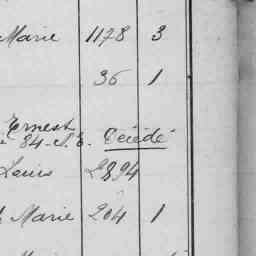 Marie 1178 3
36 1
Ernest
84 S.E. Décédé
Louis 2894
Marie 204 1